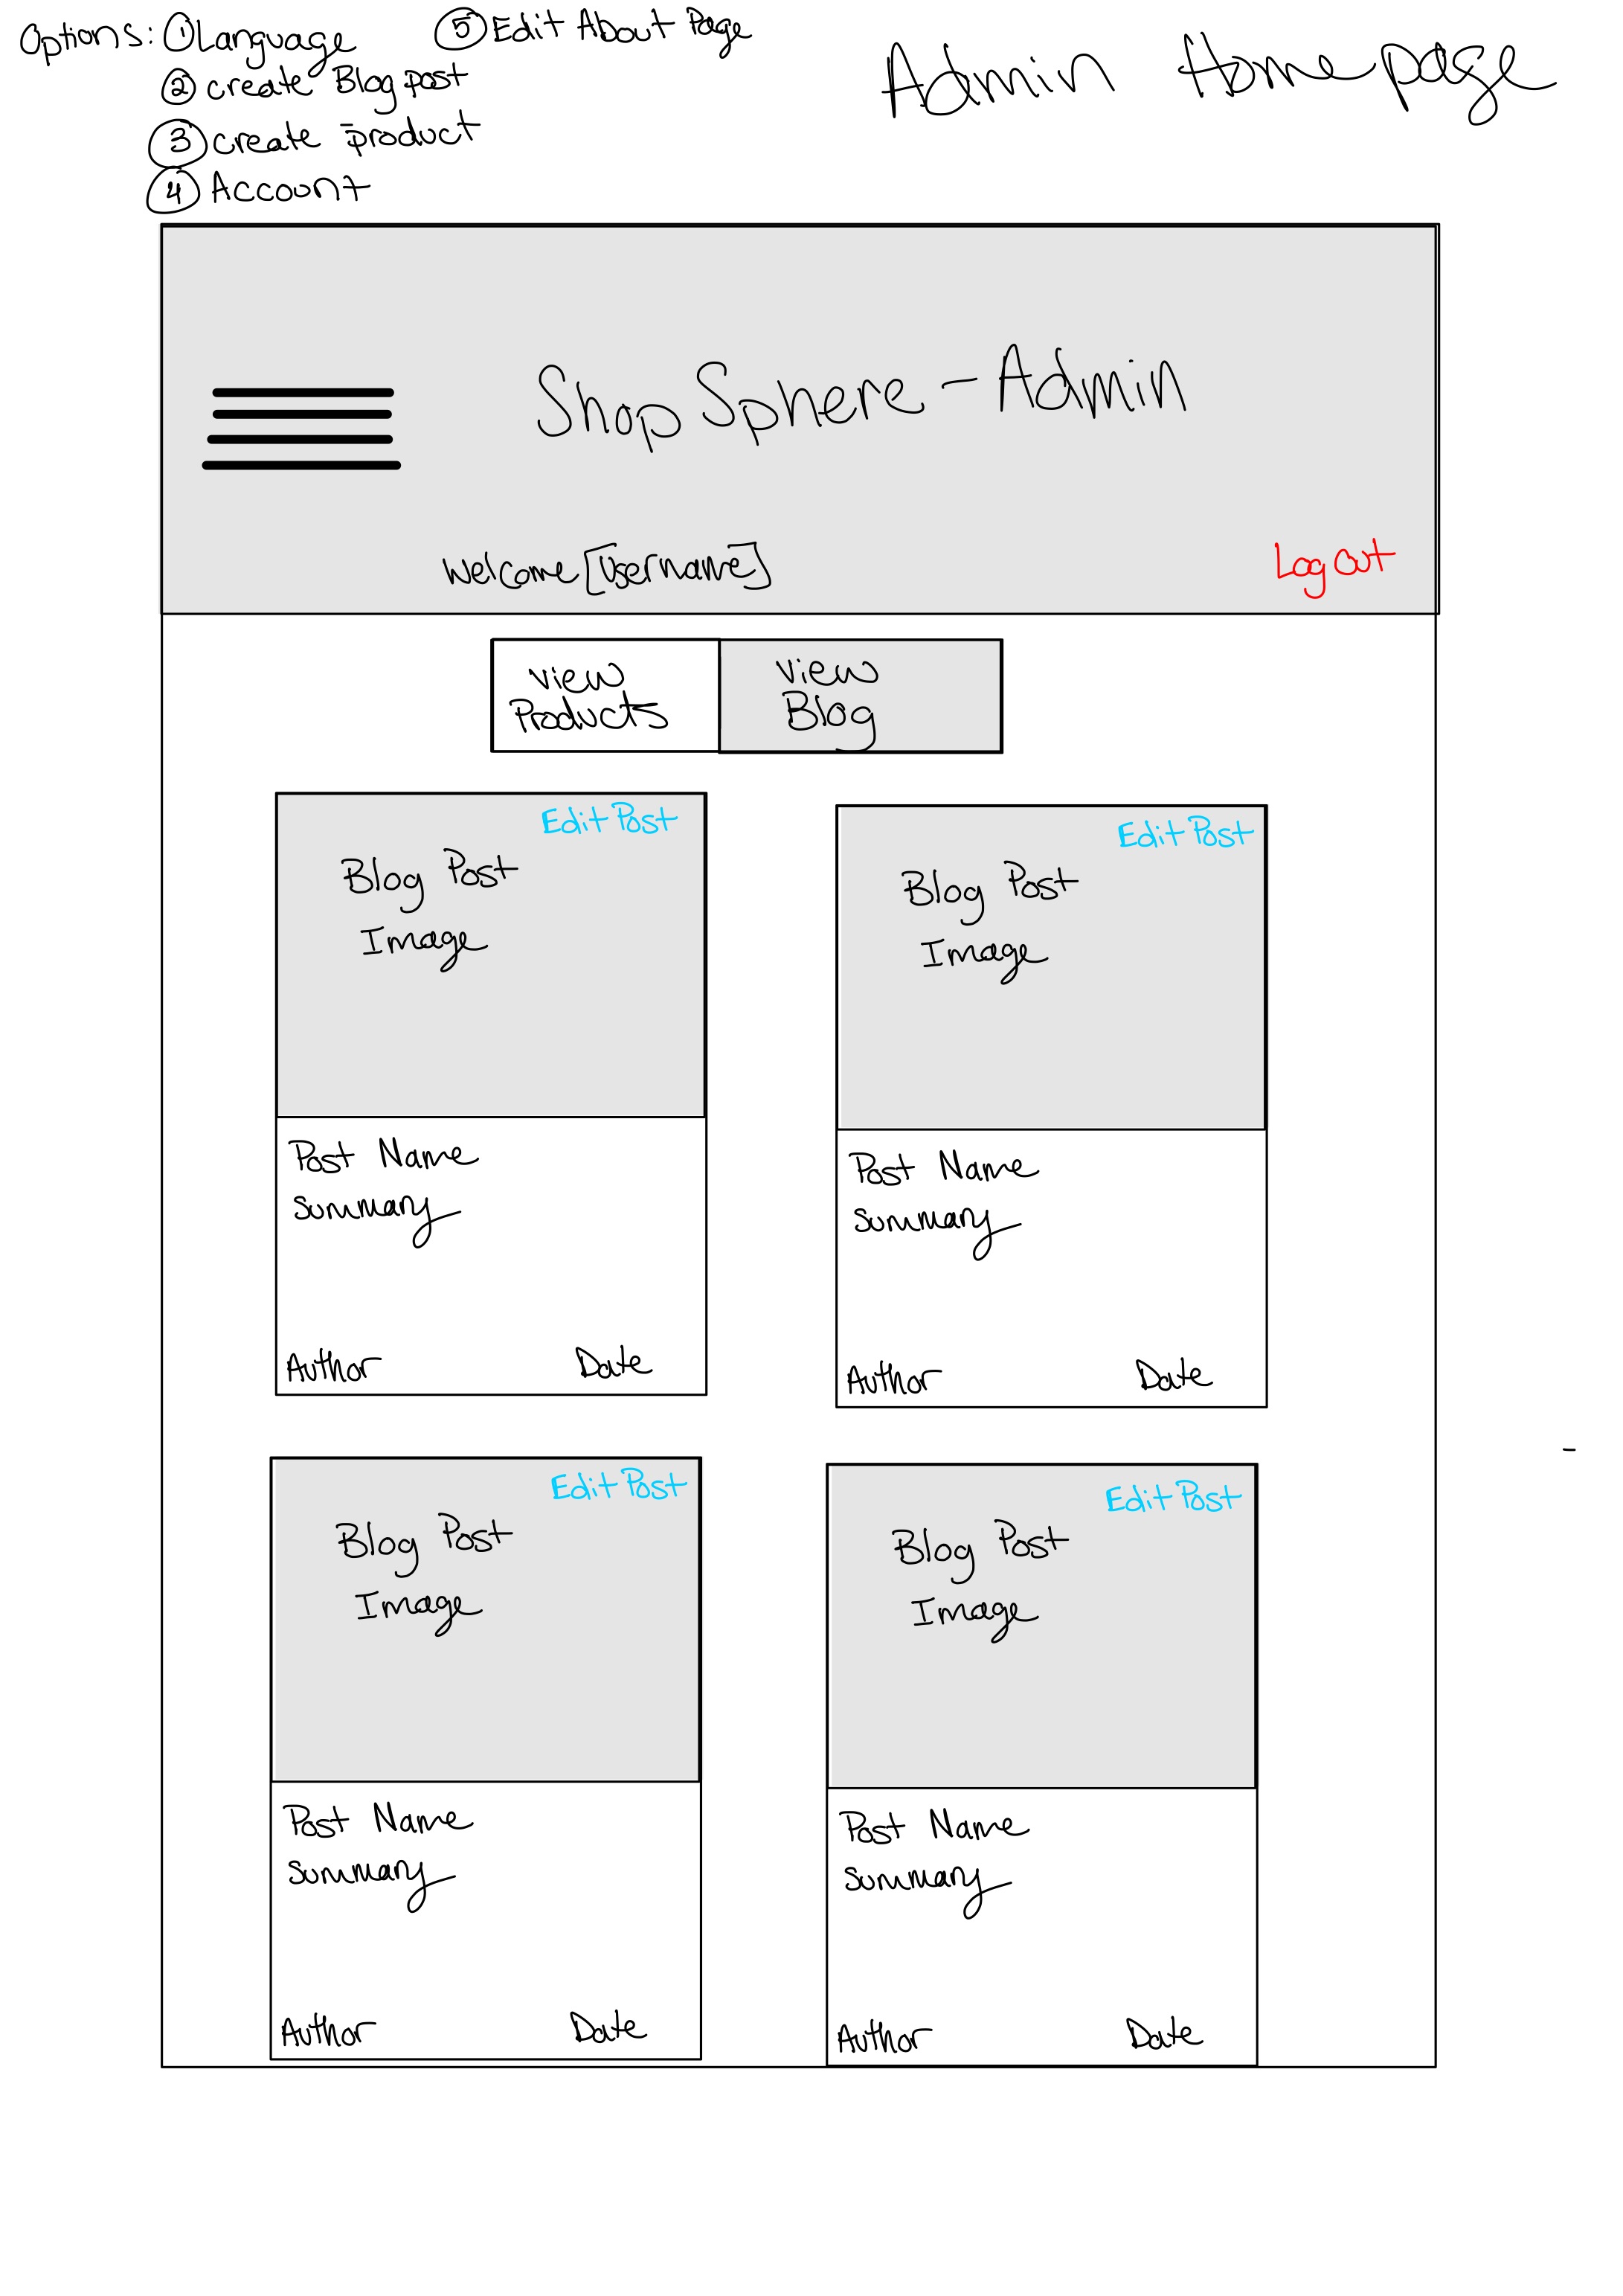 Options: ① Language
② create Blog post
③ create product
④ Account
⑤ Edit About Page
Admin Homepage
ShopSphere - Admin
Welcome [Username]
Log Out
View
Products
View
Blog
Edit Post
Blog Post
Image
Post Name
Summary
Author Date
Edit Post
Blog Post
Image
Post Name
Summary
Author Date
Edit Post
Blog Post
Image
Post Name
Summary
Author Date
Edit Post
Blog Post
Image
Post Name
Summary
Author Date